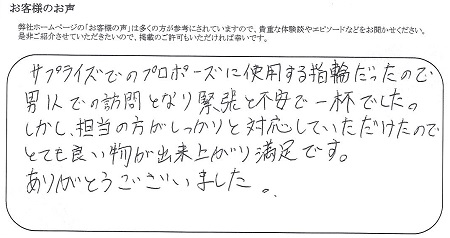 お客様のお声
弊社ホームページの「お客様の声」は多くの方が参考にされていますので、貴重な体験談やエピソードなどをお聞かせください。
是非ご紹介させていただきたいので、掲載のご許可もいただければ幸いです。
サプライズでのプロポーズに使用する指輪だったので
男1人での訪問となり緊張と不安で一杯でした。
しかし、担当の方がしっかりと対応していただけたので
とても良い物が出来上がり満足です。
ありがとうございました。